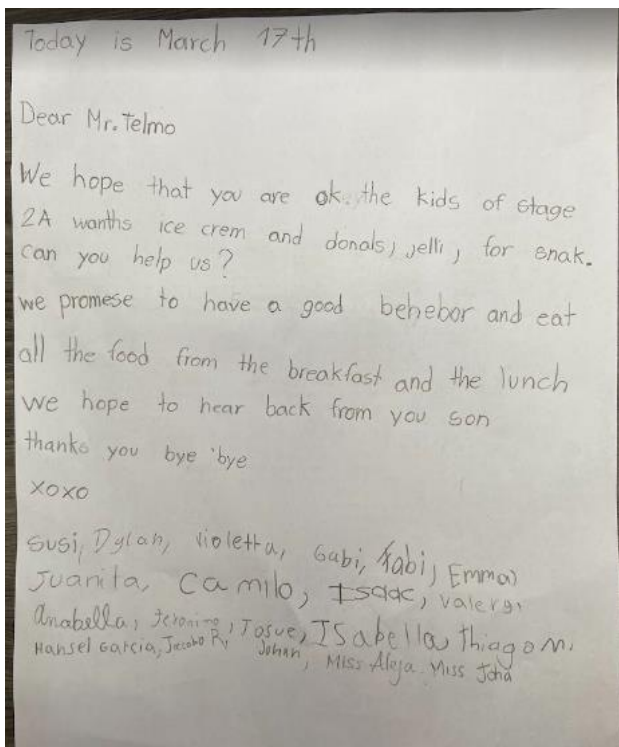 Today is March 17th
Dear Mr. Telmo
We hope that you are ok the kids of stage
2A wanths ice crem and donals, jelli, for snak.
can you help us?
we promese to have a good behebor and eat
all the food from the breakfast and the lunch
we hope to hear back from you son
thanks you bye bye
xoxo
Susi, Dylan, violetta, Gabi, Fabi, Emma,
Juanita, Camilo, Isaac, valery,
Anabella, Jeronimo, Josue, ISabella, thiago m.
Hansel Garcia, Jacobo R, Johan, Miss Aleja. Miss Joha